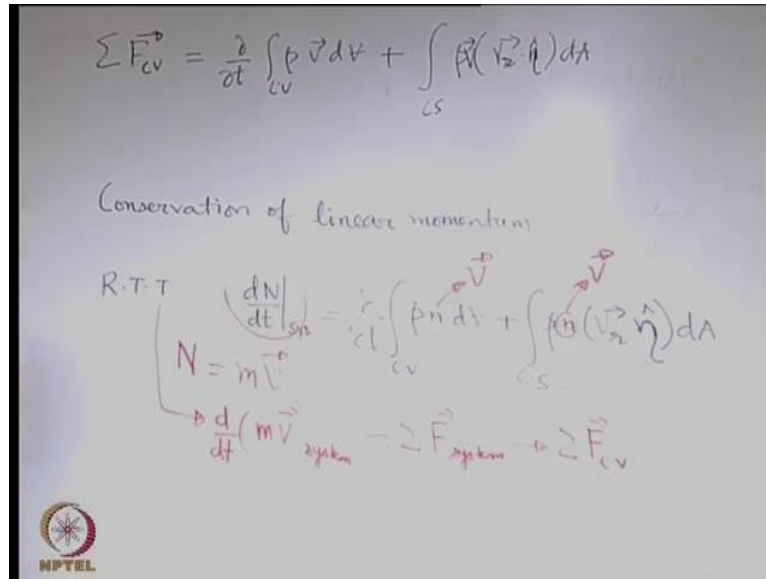 Σ F⃗_CV = ∂/∂t ∫_CV ρ V⃗ dV + ∫_CS ρV⃗ (V⃗_r · η̂) dA
Conservation of linear momentum
R.T.T dN/dt |_sys = ∂/∂t ∫_CV ρ n dV + ∫_CS ρ n (V⃗_r · η̂) dA
V⃗ V⃗
N = m V⃗
d/dt (m V⃗ system = Σ F⃗_system → Σ F⃗_CV
NPTEL